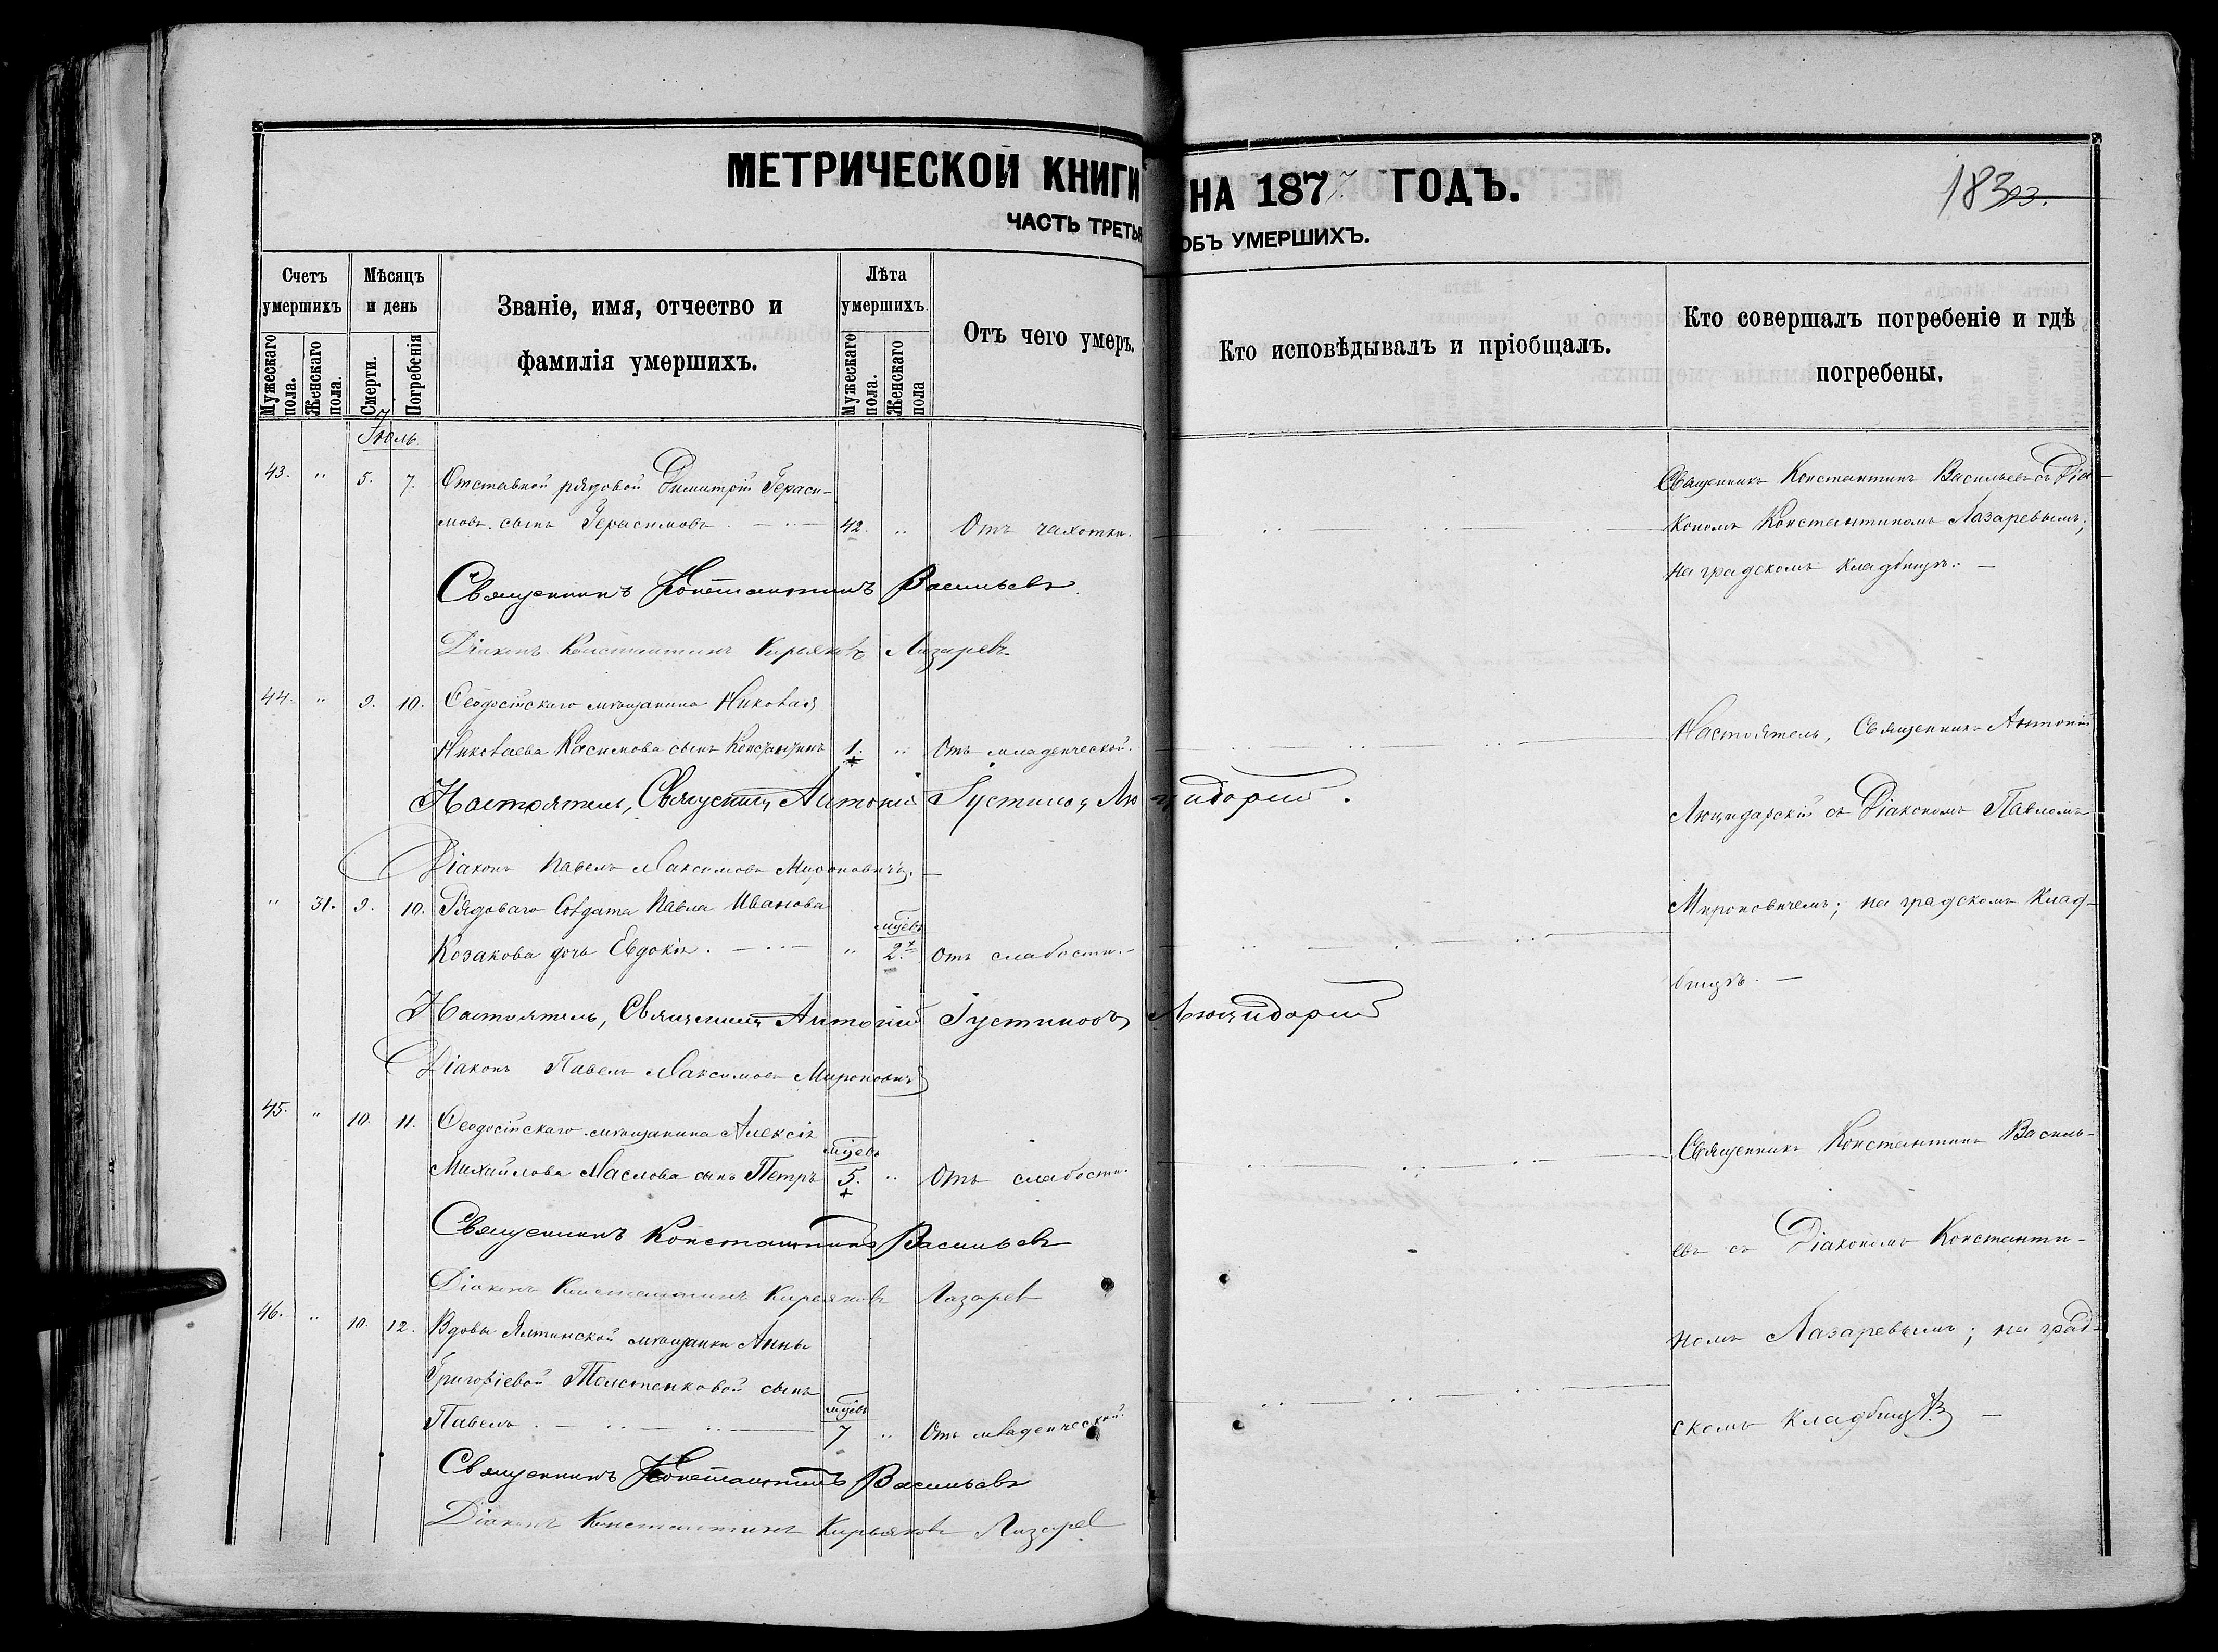 МЕТРИЧЕСКОЙ КНИГИ НА 1877 ГОДЪ.
ЧАСТЬ ТРЕТЬЯ ОБЪ УМЕРШИХЪ.
Счетъ умершихъ
Мужескаго пола.
Женскаго пола.
Мѣсяцъ и день
Смерти.
Погребенія
Званіе, имя, отчество и
фамилія умершихъ.
Лѣта умершихъ.
Мужескаго пола.
Женскаго пола
Отъ чего умеръ.
Кто исповѣдывалъ и пріобщалъ.
Кто совершалъ погребеніе и гдѣ
погребены.
Іюль
43. " 5. 7. Отставной рядовой Димитрій Гераси-
мовъ сынъ Герасимовъ. 42. " Отъ чахотки.
Священникъ Константинъ Васильевъ съ Діа-
кономъ Константиномъ Лазаревымъ;
на градскомъ кладбищѣ. —
Священникъ Константинъ Васильевъ.
Діаконъ Константинъ Кирьяковъ Лазаревъ
44. " 9. 10. Ѳеодосійскаго мѣщанина Николая
Николаева Касимова сынъ Константинъ 1. " Отъ младенческой.
Настоятель, Священникъ Антоній Іустиновъ
Діаконъ Павелъ Максимовъ Мироновичъ. —
" 31. 9. 10. Рядоваго Солдата Павла Иванова
Козакова дочь Евдокія. " мцевъ 2. Отъ слабости.
Настоятель, Священникъ Антоній
съ Діакономъ Павломъ
Мироновичемъ; на градскомъ клад-
бищѣ. —
Настоятель, Священникъ Антоній Іустиновъ
Діаконъ Павелъ Максимовъ Мироновичъ
45. " 10. 11. Ѳеодосійскаго мѣщанина Алексія
Михайлова Маслова сынъ Петръ мцевъ 5. " Отъ слабости.
Священникъ Константинъ Васильевъ
Діаконъ Константинъ Кирьяковъ Лазаревъ
46. " 10. 12. Вдовы Ялтинской мѣщанки Анны
Григоріевой Толстенковой сынъ
Павелъ. мцевъ 7 " Отъ младенческой.
Священникъ Константинъ Василь-
евъ съ Діакономъ Константи-
номъ Лазаревымъ; на град-
скомъ кладбищѣ —
Священникъ Константинъ Васильевъ
Діаконъ Константинъ Кирьяковъ Лазаревъ